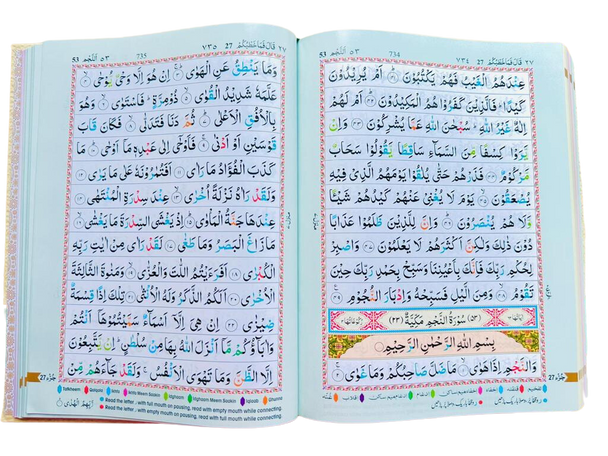 ٢٧ قَالَ فَمَا خَطْبُكُمْ 27 ٧٣٤ 734 اَلنَّجْم ٥٣ 53
عِنْدَهُمُ الْغَيْبُ فَهُمْ يَكْتُبُوْنَ ؕ اَمْ يُرِيْدُوْنَ
كَيْدًا ؕ فَالَّذِيْنَ كَفَرُوْا هُمُ الْمَكِيْدُوْنَ ؕ اَمْ لَهُمْ
اِلٰهٌ غَيْرُ اللّٰهِ ؕ سُبْحٰنَ اللّٰهِ عَمَّا يُشْرِكُوْنَ وَاِنْ
يَّرَوْا كِسْفًا مِّنَ السَّمَآءِ سَاقِطًا يَّقُوْلُوْا سَحَابٌ
مَّرْكُوْمٌ فَذَرْهُمْ حَتّٰى يُلٰقُوْا يَوْمَهُمُ الَّذِيْ فِيْهِ
يُصْعَقُوْنَ ۙ يَوْمَ لَا يُغْنِيْ عَنْهُمْ كَيْدُهُمْ شَيْئًا
وَّلَا هُمْ يُنْصَرُوْنَ ؕ وَاِنَّ لِلَّذِيْنَ ظَلَمُوْا عَذَابًا
دُوْنَ ذٰلِكَ وَلٰكِنَّ اَكْثَرَهُمْ لَا يَعْلَمُوْنَ وَاصْبِرْ
لِحُكْمِ رَبِّكَ فَاِنَّكَ بِاَعْيُنِنَا وَسَبِّحْ بِحَمْدِ رَبِّكَ حِيْنَ
تَقُوْمُ ۙ وَمِنَ الَّيْلِ فَسَبِّحْهُ وَاِدْبَارَ النُّجُوْمِ
(٥٣) سُوْرَةُ النَّجْمِ مَكِّيَّةٌ (٢٣)
بِسْمِ اللّٰهِ الرَّحْمٰنِ الرَّحِيْمِ
وَالنَّجْمِ اِذَا هَوٰى ۙ مَا ضَلَّ صَاحِبُكُمْ وَمَا غَوٰى ۚ
27 جُزْء
٢٧ قَالَ فَمَا خَطْبُكُمْ 27 ٧٣٥ 735 اَلنَّجْم ٥٣ 53
وَمَا يَنْطِقُ عَنِ الْهَوٰى ؕ اِنْ هُوَ اِلَّا وَحْيٌ يُّوْحٰى ۙ
عَلَّمَهٗ شَدِيْدُ الْقُوٰى ۙ ذُوْ مِرَّةٍ ؕ فَاسْتَوٰى ۙ وَهُوَ
بِالْاُفُقِ الْاَعْلٰى ؕ ثُمَّ دَنَا فَتَدَلّٰى ۙ فَكَانَ قَابَ
قَوْسَيْنِ اَوْ اَدْنٰى ۚ فَاَوْحٰٓى اِلٰى عَبْدِهٖ مَآ اَوْحٰى ؕ مَا
كَذَبَ الْفُؤَادُ مَا رَاٰى اَفَتُمٰرُوْنَهٗ عَلٰى مَا يَرٰى
وَلَقَدْ رَاٰهُ نَزْلَةً اُخْرٰى ۙ عِنْدَ سِدْرَةِ الْمُنْتَهٰى
عِنْدَهَا جَنَّةُ الْمَاْوٰى ؕ اِذْ يَغْشَى السِّدْرَةَ مَا يَغْشٰى ۙ
مَا زَاغَ الْبَصَرُ وَمَا طَغٰى لَقَدْ رَاٰى مِنْ اٰيٰتِ رَبِّهِ
الْكُبْرٰى اَفَرَءَيْتُمُ اللّٰتَ وَالْعُزّٰى ۙ وَمَنٰوةَ الثَّالِثَةَ
الْاُخْرٰى اَلَكُمُ الذَّكَرُ وَلَهُ الْاُنْثٰى تِلْكَ اِذًا قِسْمَةٌ
ضِيْزٰى اِنْ هِيَ اِلَّآ اَسْمَآءٌ سَمَّيْتُمُوْهَآ اَنْتُمْ
وَاٰبَآؤُكُمْ مَّآ اَنْزَلَ اللّٰهُ بِهَا مِنْ سُلْطٰنٍ ؕ اِنْ يَّتَّبِعُوْنَ
اِلَّا الظَّنَّ وَمَا تَهْوَى الْاَنْفُسُ ۚ وَلَقَدْ جَآءَهُمْ مِّنْ
27 جُزْء
رَّبِّهِمُ الْهُدٰى ؕ
Tafkheem Qalqala Ikhfa Meem Saakin Idghaam Idghaam Meem Saakin Iqlaab Ghunna
Read the letter with full mouth on pausing, read with empty mouth while connecting.
Read the letter with empty mouth on pausing, read with full mouth while connecting.